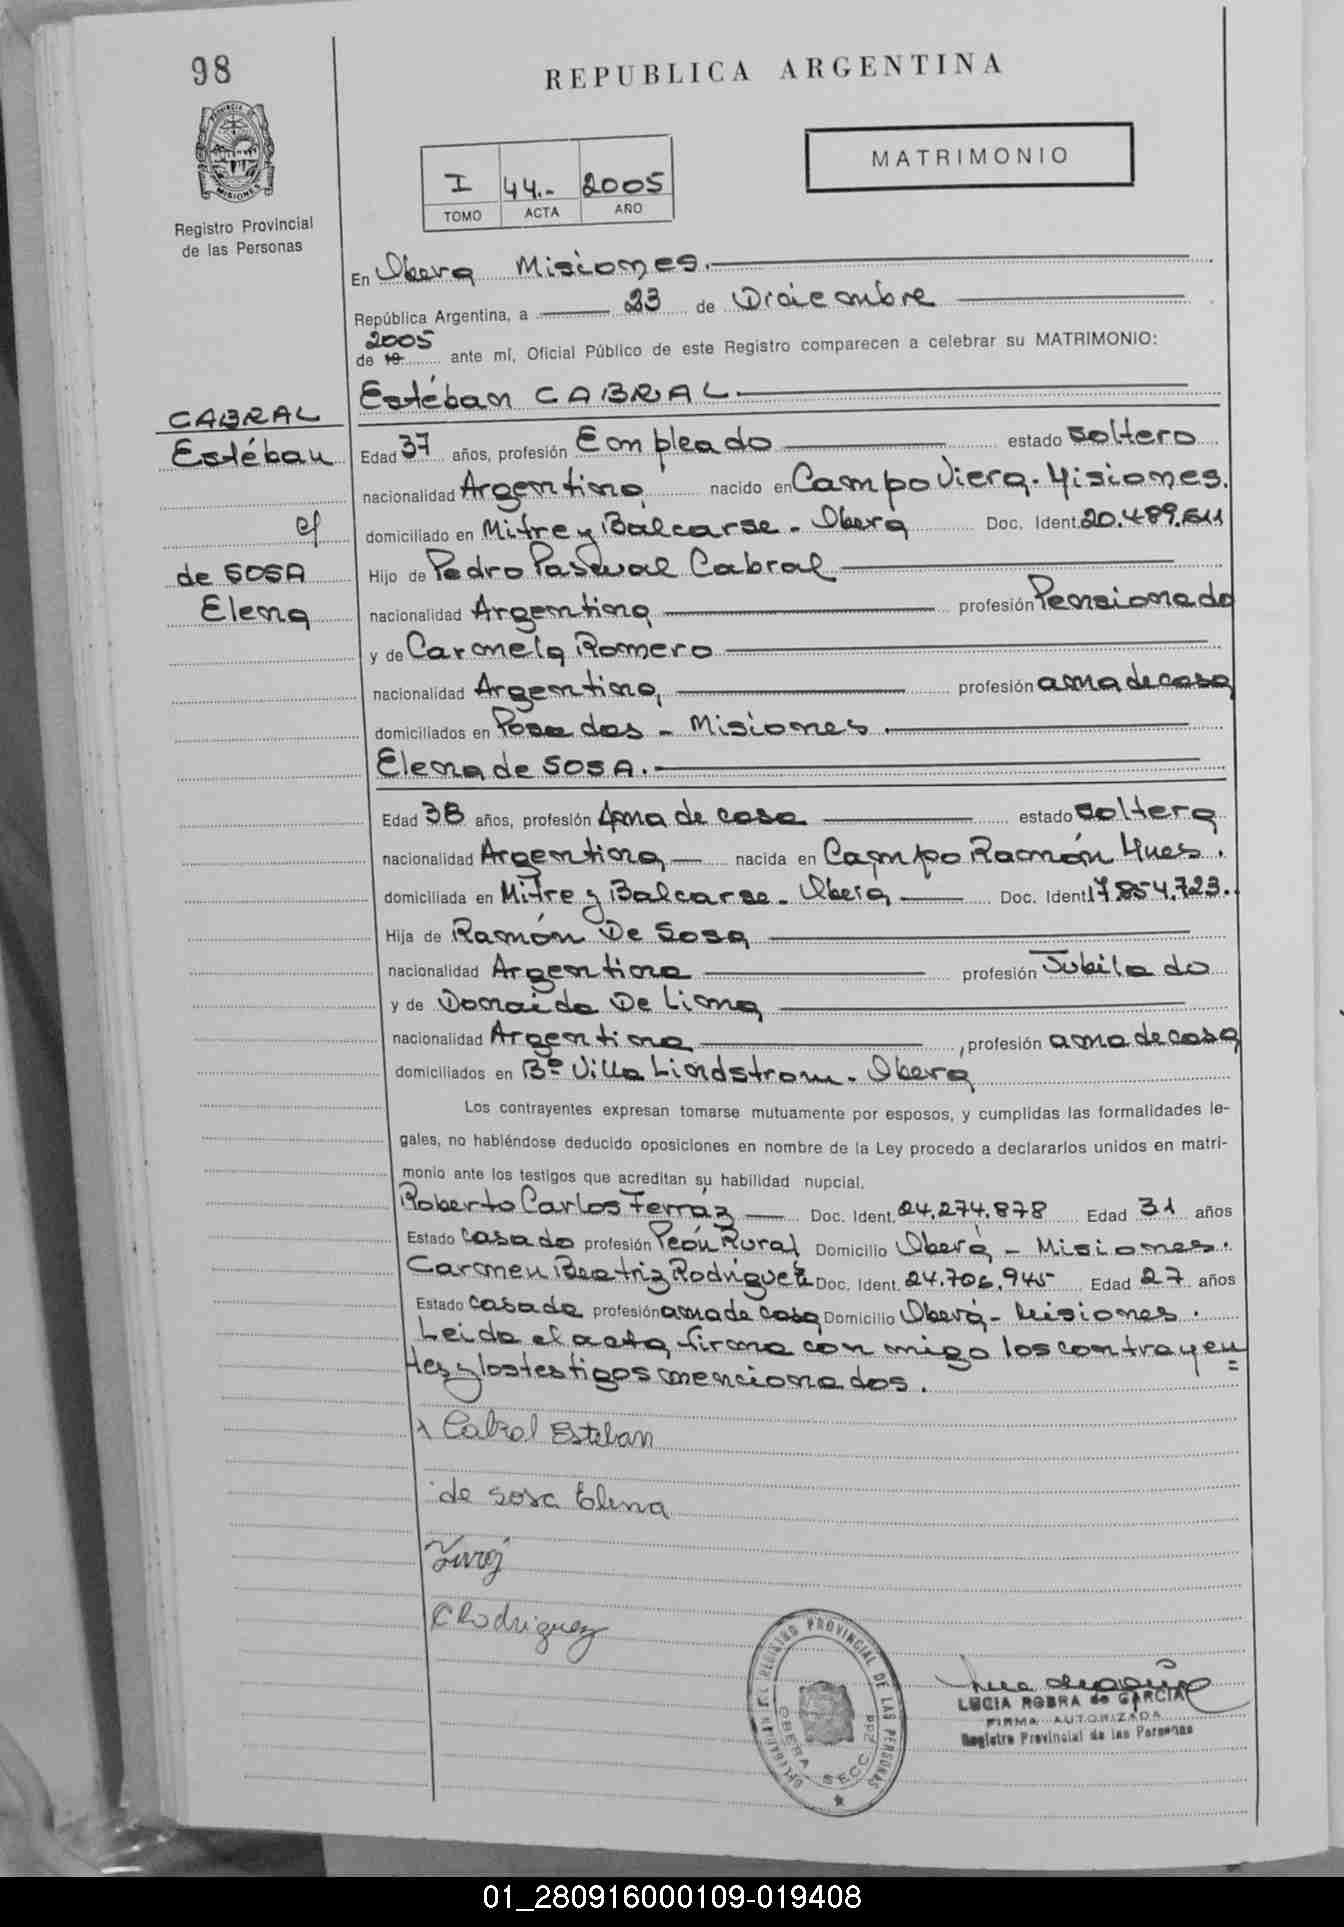 98
REPUBLICA ARGENTINA
PROVINCIA DE MISIONES
Registro Provincial
de las Personas
MATRIMONIO
I 44.- 2005
TOMO ACTA AÑO
En Obera Misiones.
República Argentina, a 23 de Diciembre
2005
de 19 ante mí, Oficial Público de este Registro comparecen a celebrar su MATRIMONIO:
Estéban CABRAL
CABRAL
Estéban
c/
de SOSA
Elena
Edad 37 años, profesión Empleado estado soltero
nacionalidad Argentina nacido en Campo Viera. Misiones.
domiciliado en Mitre y Balcarse - Obera Doc. Ident. 20.489.611
Hijo de Pedro Pascual Cabral
nacionalidad Argentina profesión Pensionado
y de Carmela Romero
nacionalidad Argentina, profesión ama de casa
domiciliados en Posadas - Misiones.
Elena de SOSA.
Edad 38 años, profesión Ama de casa estado soltera
nacionalidad Argentina nacida en Campo Ramón Mnes.
domiciliada en Mitre y Balcarse - Obera Doc. Ident. 17.854.723.
Hija de Ramón De Sosa
nacionalidad Argentina profesión Jubilado
y de Donaida De Lima
nacionalidad Argentina, profesión ama de casa
domiciliados en Bº Villa Lindstrom. Obera
Los contrayentes expresan tomarse mutuamente por esposos, y cumplidas las formalidades le-
gales, no habiéndose deducido oposiciones en nombre de la Ley procedo a declararlos unidos en matri-
monio ante los testigos que acreditan su habilidad nupcial.
Roberto Carlos Ferráz Doc. Ident. 24.274.878 Edad 31 años
Estado casado profesión Peón Rural Domicilio Oberá - Misiones.
Carmen Beatriz Rodriguez Doc. Ident. 24.706.945 Edad 27 años
Estado casada profesión ama de casa Domicilio Oberá - Misiones.
Leida el acta, firma con migo los contrayen
tes y los testigos mencionados.
x Cabral Esteban
de sosa Elena
C Rodriguez
REGISTRO PROVINCIAL DE LAS PERSONAS
OBERA SECC. 2da
LUCIA ROBRA de GARCIA
FIRMA AUTORIZADA
Registro Provincial de las Personas
01_280916000109-019408